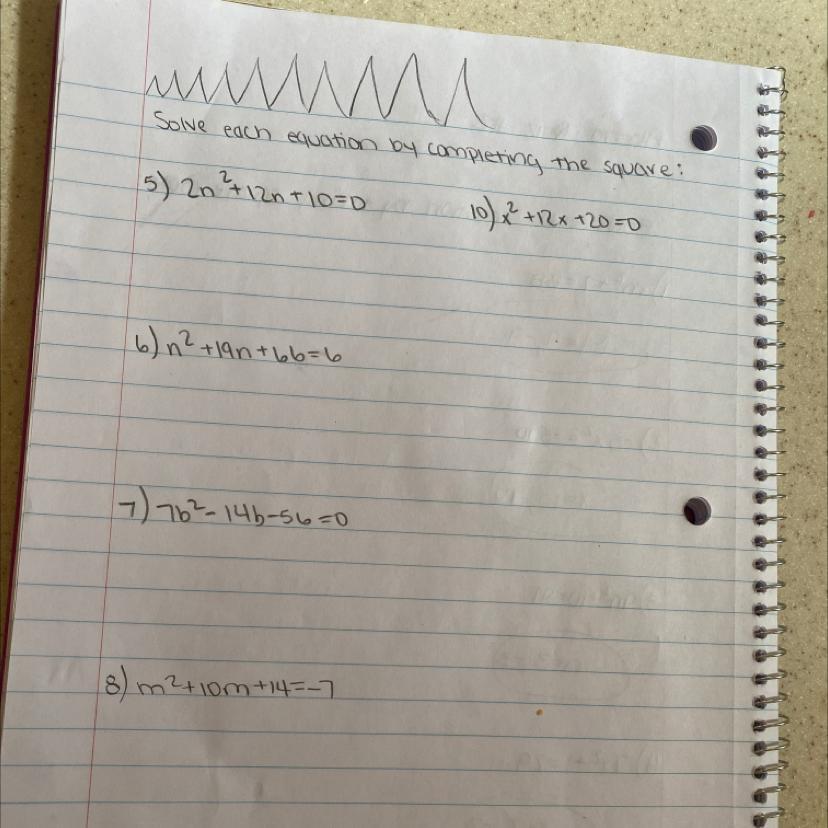 Solve each equation by completing the square:
5) 2n²+12n+10=0
10) x²+12x+20=0
6) n²+19n+66=6
7) 7b²-14b-56=0
8) m²+10m+14=-7